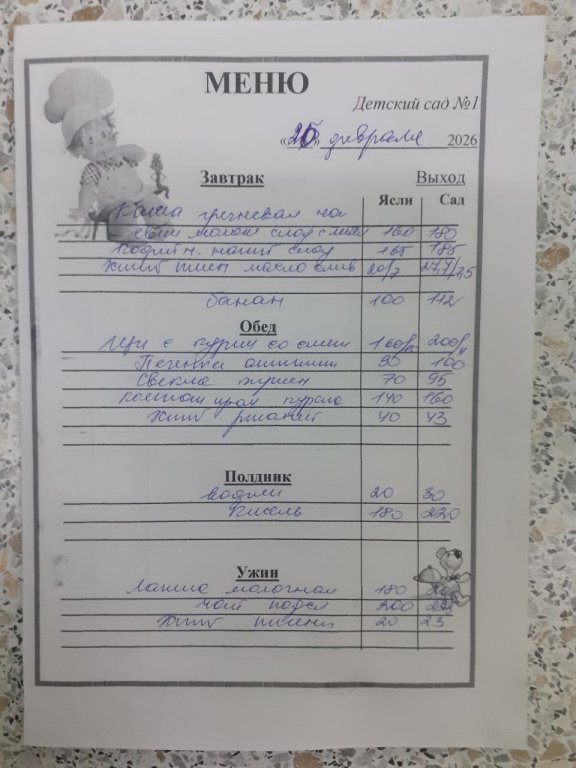 МЕНЮ
Детский сад №1
« » февраля 2026
Завтрак Выход
Ясли Сад
Каша гречневая на
свеж молоке слад с масл 160 180
Кофейн. напит слад 165 185
Хлеб пшен масло слив 20/7 27,7/7,5
банан 100 112
Обед
Щи с курин со смет 160/ 200/
Печенка 90 100
Свекла тушен 70 95
Компот 140 160
Хлеб ржаной 40 43
Полдник
вафли 20 30
Кисель 180 220
Ужин
Лапша молочная 180
чай 200
Хлеб пшенич 20 23